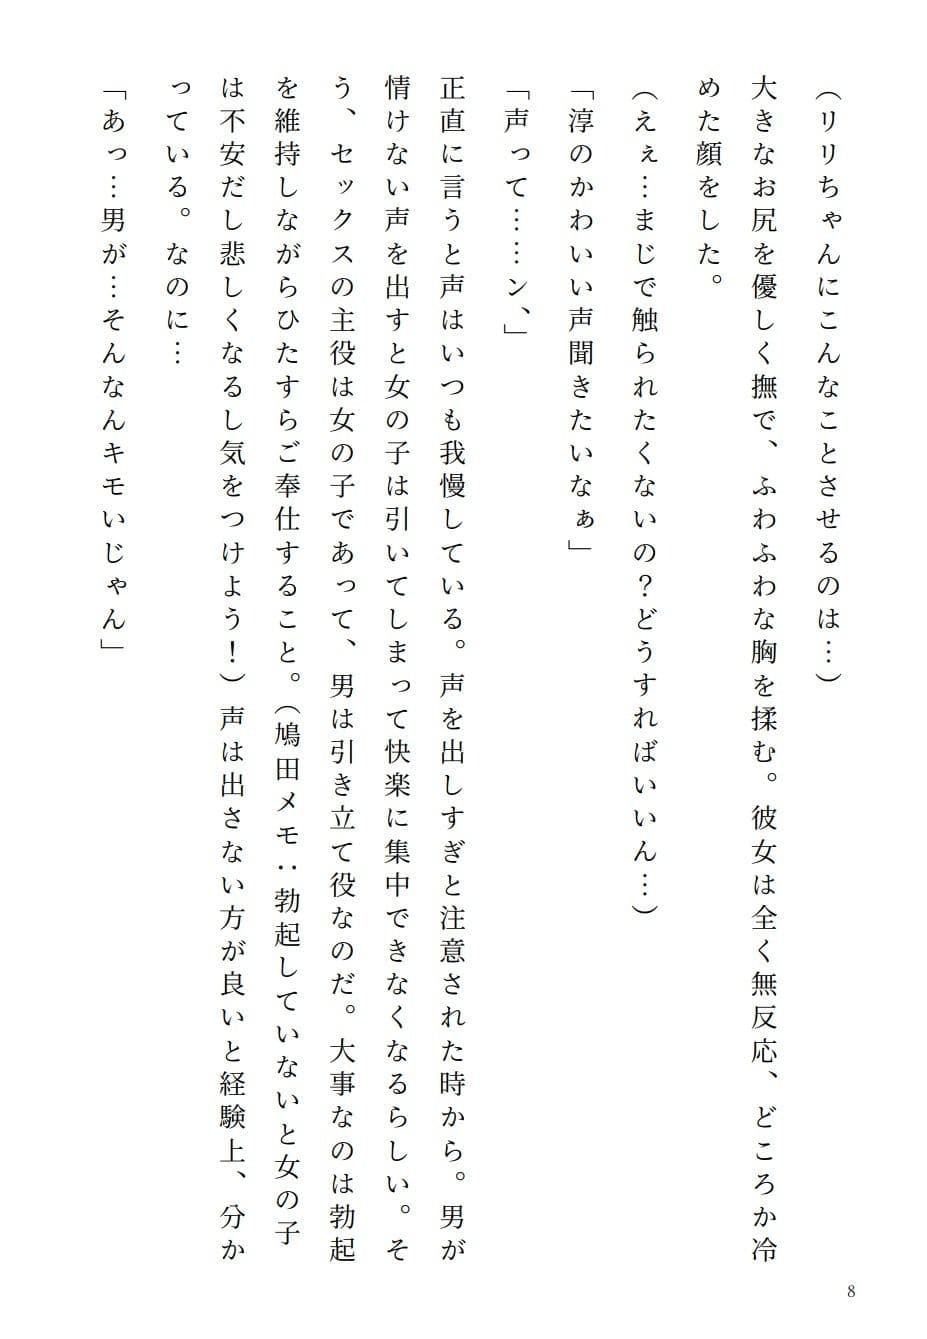 （リリちゃんにこんなことさせるのは…）
大きなお尻を優しく撫で、ふわふわな胸を揉む。彼女は全く無反応、どころか冷
めた顔をした。
（えぇ…まじで触られたくないの？どうすればいいん…）
「淳のかわいい声聞きたいなぁ」
「声って……ン、」
正直に言うと声はいつも我慢している。声を出しすぎと注意された時から。男が
情けない声を出すと女の子は引いてしまって快楽に集中できなくなるらしい。そ
う、セックスの主役は女の子であって、男は引き立て役なのだ。大事なのは勃起
を維持しながらひたすらご奉仕すること。（鳩田メモ：勃起していないと女の子
は不安だし悲しくなるし気をつけよう！）声は出さない方が良いと経験上、分か
っている。なのに…
「あっ…男が…そんなんキモいじゃん」
8